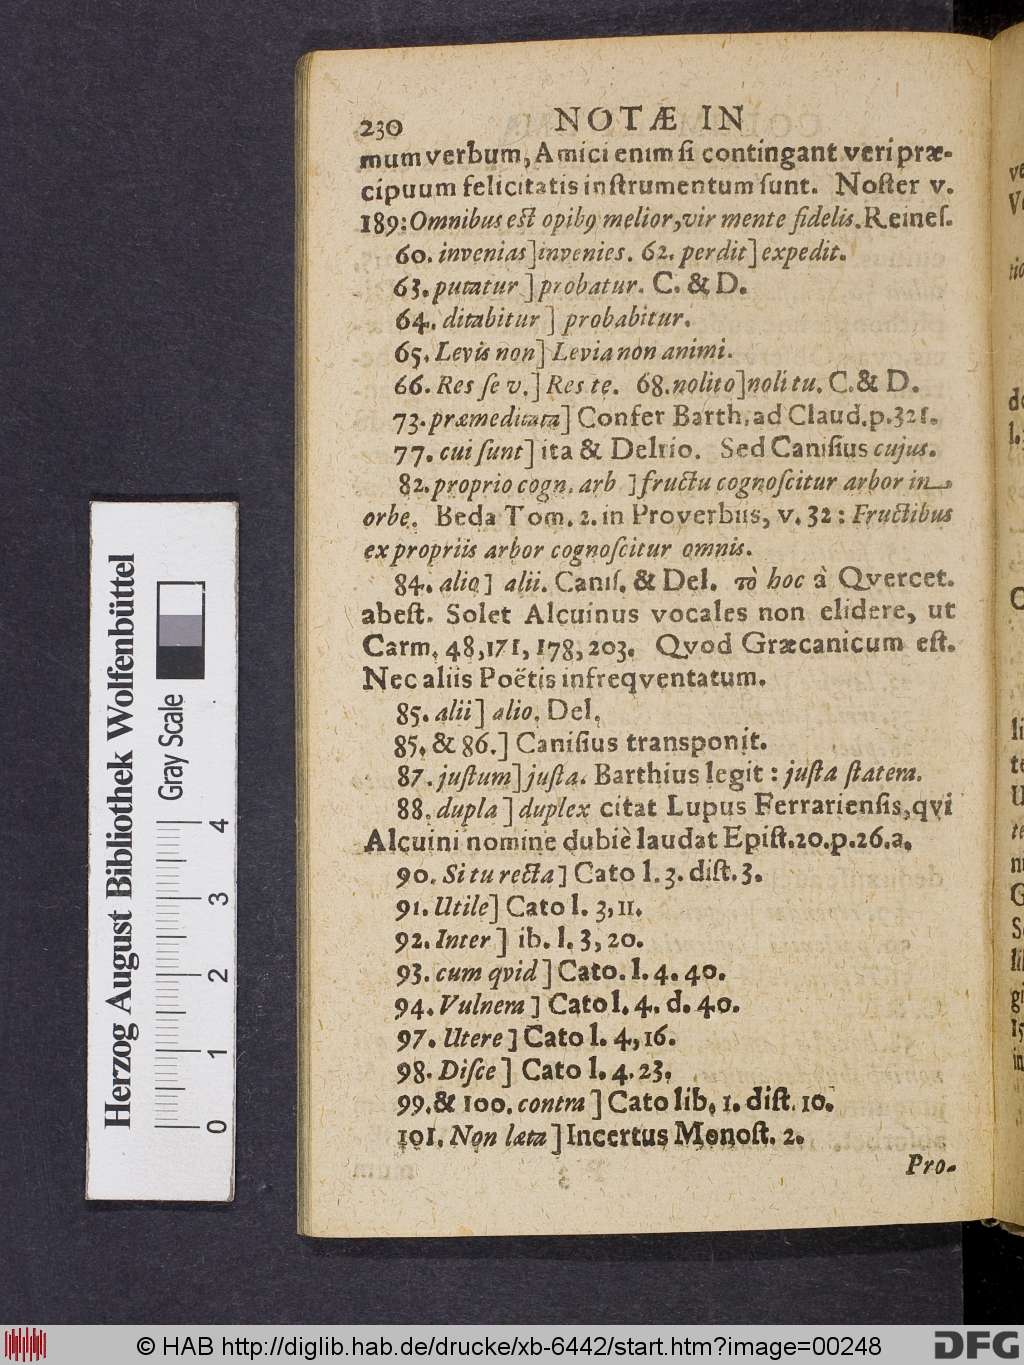 230 NOTÆ IN
mum verbum, Amici enim ſi contingant veri præ-
cipuum felicitatis inſtrumentum ſunt. Noſter v.
189: Omnibus eſt opibꝰ melior, vir mente fidelis. Reineſ.
60. invenias] invenies. 62. perdit] expedit.
63. putatur] probatur. C. & D.
64. ditabitur] probabitur.
65. Levis non] Levia non animi.
66. Res ſe v.] Res te. 68. nolito] noli tu. C. & D.
73. præmeditata] Confer Barth. ad Claud. p. 321.
77. cui ſunt] ita & Delrio. Sed Caniſius cujus.
82. proprio cogn. arb] fructu cognoſcitur arbor in
orbe. Beda Tom. 2. in Proverbiis, v. 32: Fructibus
ex propriis arbor cognoſcitur omnis.
84. alio] alii. Caniſ. & Del. τὸ hoc à Qvercet.
abeſt. Solet Alcuinus vocales non elidere, ut
Carm. 48, 171, 178, 203. Qvod Græcanicum eſt.
Nec aliis Poëtis infreqventatum.
85. alii] alio. Del.
85. & 86.] Caniſius transponit.
87. juſtum] juſta. Barthius legit: juſta ſtatera.
88. dupla] duplex citat Lupus Ferrarienſis, qvi
Alcuini nomine dubiè laudat Epiſt. 20. p. 26. a.
90. Si tu recta] Cato l. 3. diſt. 3.
91. Utile] Cato l. 3, 11.
92. Inter] ib. l. 3, 20.
93. cum qvid] Cato. l. 4. 40.
94. Vulnera] Cato l. 4. d. 40.
97. Utere] Cato l. 4, 16.
98. Diſce] Cato l. 4. 23.
99. & 100. contra] Cato lib. 1. diſt. 10.
101. Non læta] Incertus Monoſt. 2.
Pro-
Herzog August Bibliothek Wolfenbüttel
Gray Scale
0 1 2 3 4
© HAB http://diglib.hab.de/drucke/xb-6442/start.htm?image=00248
DFG